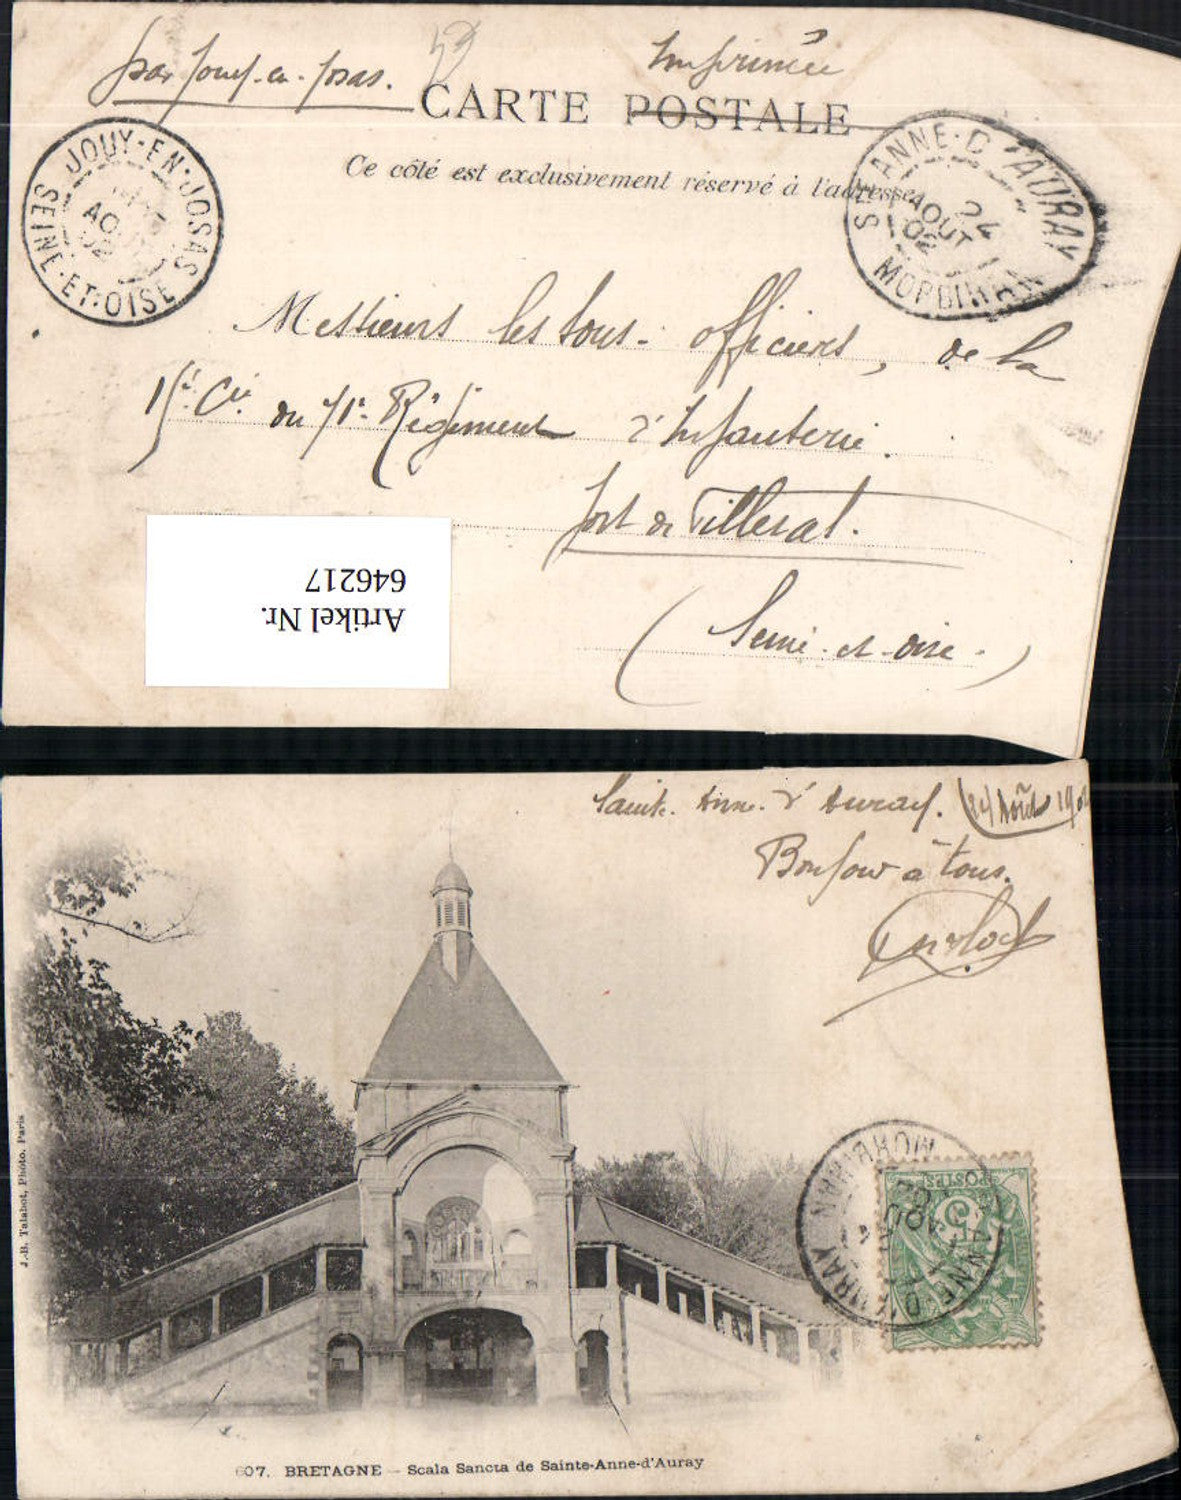 par Jouy-en-Josas.
Imprimée
CARTE POSTALE
Ce côté est exclusivement réservé à l'adresse
JOUY-EN-JOSAS
AOUT
02
SEINE-ET-OISE
STE ANNE-D'AURAY
24
AOUT
02
MORBIHAN
Messieurs les sous-officiers, de la
du 71e Régiment d'Infanterie.
fort de Villeras.
(Seine-et-Oise.)
Artikel Nr.
646217
Sainte-Anne-d'Auray. (24 Août 190
Bonjour à tous.
J.-B. Talabot, Photo. Paris
POSTES
5
STE ANNE-D'AURAY
24
AOUT
02
MORBIHAN
607. BRETAGNE — Scala Sancta de Sainte-Anne-d'Auray